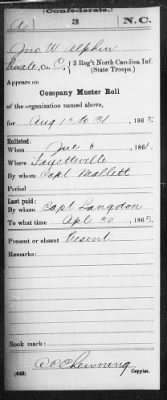 (Confederate.)
3 N.C.
Jno W. Alphin
Private, Co. C, 3 Reg't North Carolina Inf.
(State Troops.)
Appears on
Company Muster Roll
of the organization named above,
for Aug 1st to 31, 186
Enlisted:
When June 6, 1861.
Where Fayetteville
By whom Capt Mallett
Period
Last paid:
By whom Capt Langdon
To what time Apl 30, 186
Present or absent Present
Remarks:
Book mark:
Copyist.